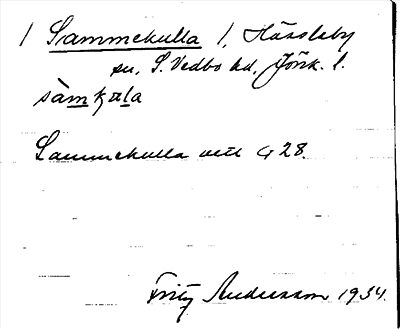 / Sammekulla /, Hässleby
sn, S. Vedbo hd, Jönk. l.
sàmkala
Sammekulla utt G 28.
Fritz Andersson 1934.